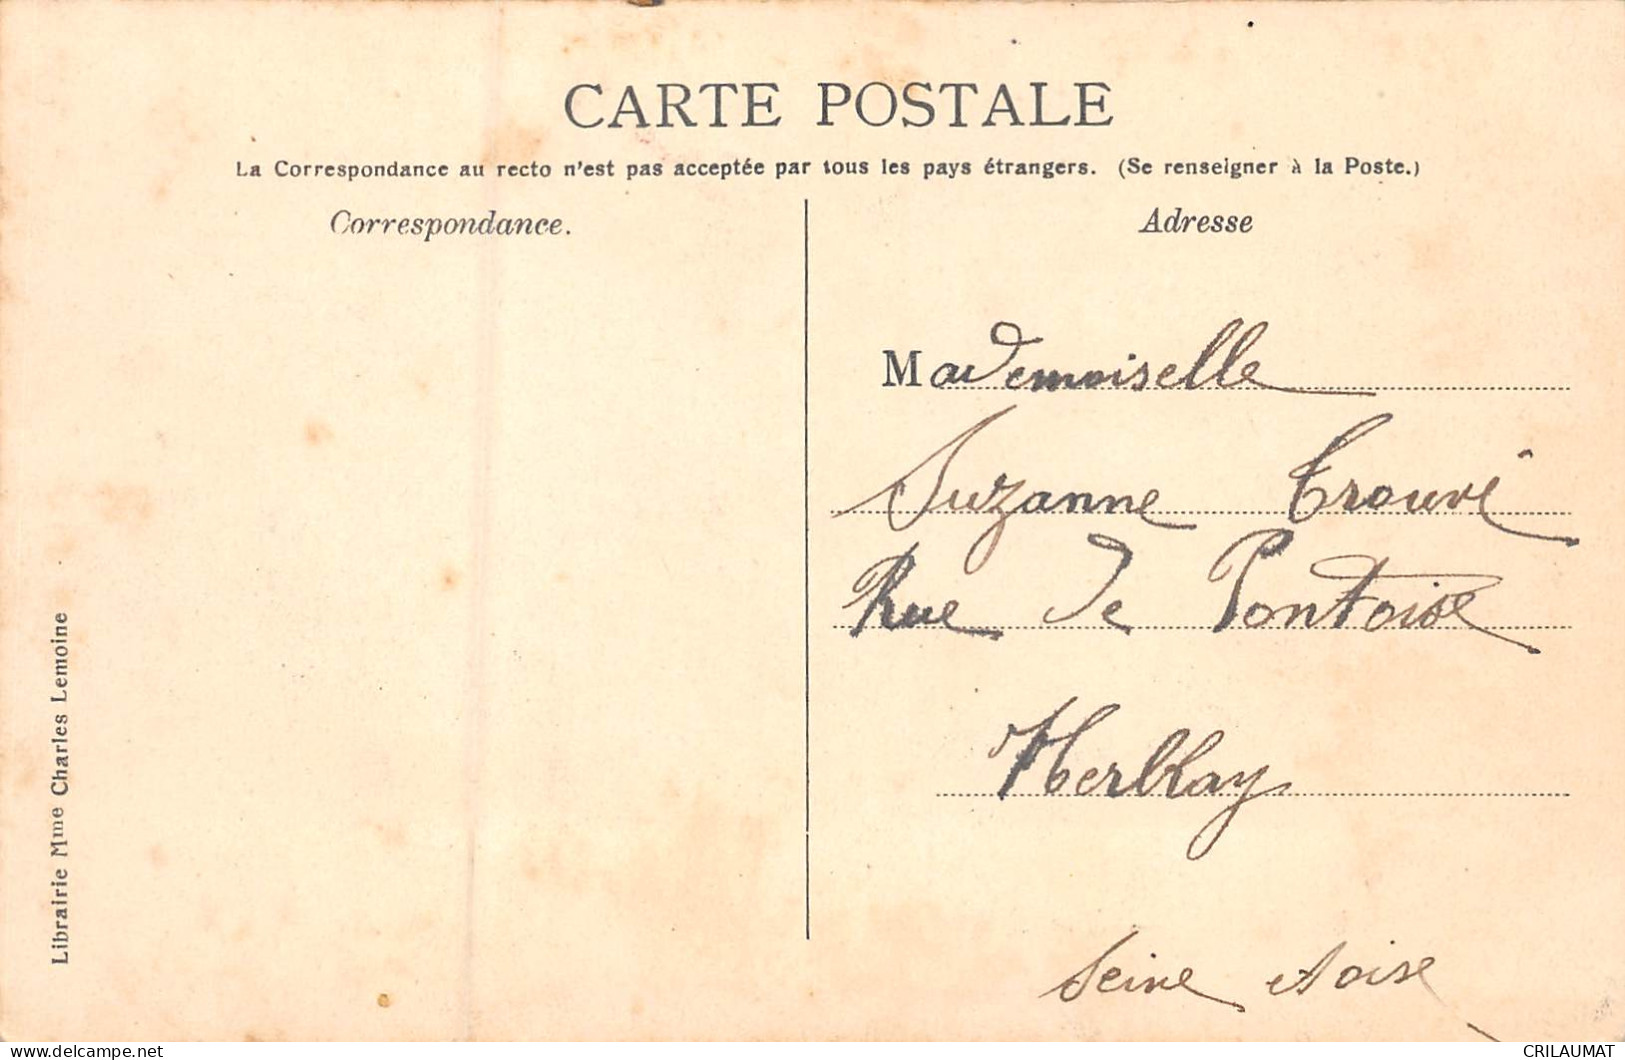 CARTE POSTALE
La Correspondance au recto n'est pas acceptée par tous les pays étrangers. (Se renseigner à la Poste.)
Correspondance.
Adresse
Mademoiselle
Suzanne Trouvé
Rue de Pontoise
Herblay
Seine et oise
Librairie Mme Charles Lemoine
delcampe.net
CRILAUMAT